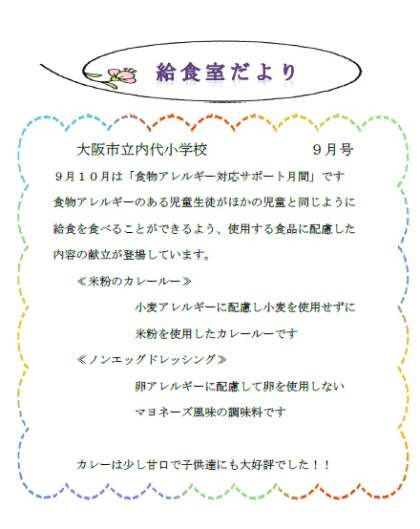 給食室だより
大阪市立内代小学校　９月号
９月１０月は「食物アレルギー対応サポート月間」です
食物アレルギーのある児童生徒がほかの児童と同じように
給食を食べることができるよう、使用する食品に配慮した
内容の献立が登場しています。
≪米粉のカレールー≫
小麦アレルギーに配慮し小麦を使用せずに
米粉を使用したカレールーです
≪ノンエッグドレッシング≫
卵アレルギーに配慮して卵を使用しない
マヨネーズ風味の調味料です
カレーは少し甘口で子供達にも大好評でした！！